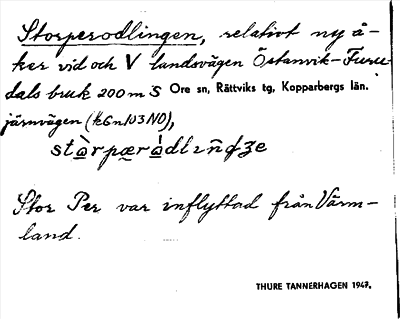 Storperodlingen, relativt ny å-
ker vid och V landsvägen Östanvik-Furu-
dals bruk 200 m S Ore sn, Rättviks tg, Kopparbergs län.
järnvägen (k6n103NO),
Stor Per var inflyttad från Värm-
land.
THURE TANNERHAGEN 1947.